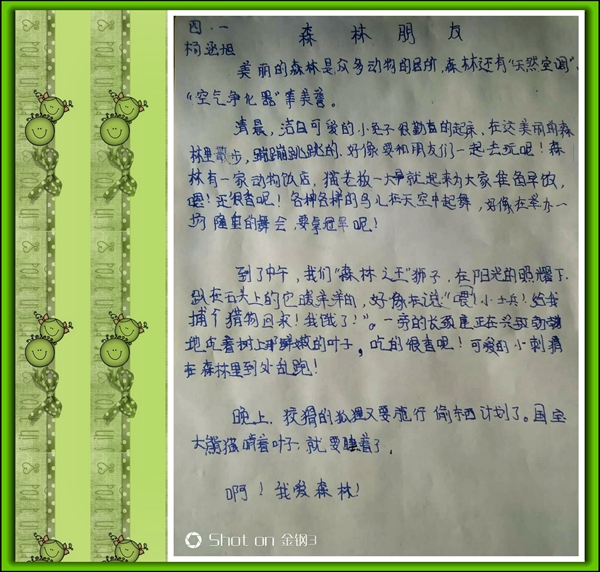 四.一 森林朋友
柯逊旭
美丽的森林是众多动物的居所,森林还有“天然空调”、
“空气净化器”等美誉。
清晨,洁白可爱的小兔子很勤奋的起床,在这美丽的森
林里散步,蹦蹦跳跳的,好像要和朋友们一起去玩吧!森
林有一家动物饭店,猫老板一大早就起来为大家准备早饭,
嘿!还很香呢!各种各样的鸟儿在天空中起舞,好像在举办一
场隆重的舞会,要争冠军呢!
到了中午,我们“森林之王”狮子,在阳光的照耀下,
趴在石头上的它暖洋洋的,好像在说“喂!小士兵!给我
捕个猎物回来!我饿了!”。一旁的长颈鹿正在兴致勃勃
地点着树上那鲜嫩的叶子,吃的很香呢!可爱的小刺猬
在森林里到处乱跑!
晚上,狡猾的狐狸又要进行偷东西计划了。国宝
大熊猫啃着叶子,就要睡着了。
啊!我爱森林!
Shot on 金钢3